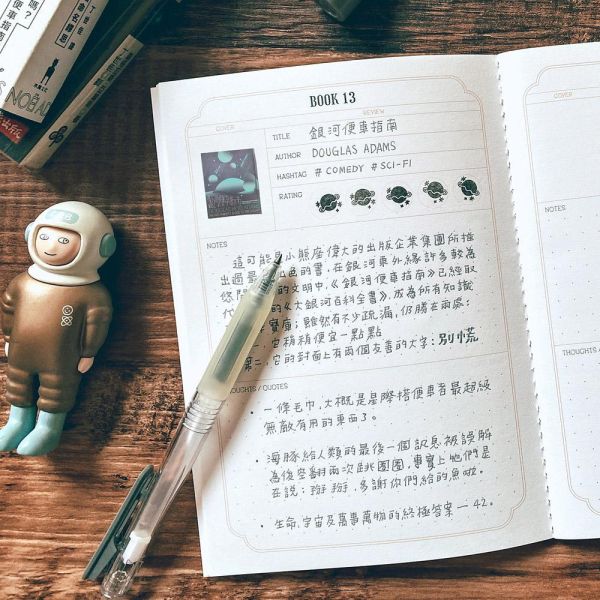 BOOK 13
REVIEW
COVER
TITLE 銀河便車指南
AUTHOR DOUGLAS ADAMS
HASHTAG # COMEDY # SCI-FI
RATING
NOTES
這可能是小熊座偉大的出版企業集團所推
出過最出色的書,在銀河東外緣許多較為
悠閒的文明中,《銀河便車指南》已經取
代的《大銀河百科全書》,成為所有知識
寶庫;雖然有不少疏漏,仍勝在兩處:
一,它稍稍便宜一點點
第二,它的封面上有兩個友善的大字:別慌
THOUGHTS / QUOTES
· 一條毛巾,大概是星際搭便車者最超級
無敵有用的東西了。
· 海豚給人類的最後一個訊息被誤解
為後空翻兩次跳圈圈,事實上牠們是
在說:掰掰,多謝你們給的魚啦。
· 生命,宇宙及萬事萬物的終極答案 — 42。
COVER
NOTES
THOUGHTS /
便車指南